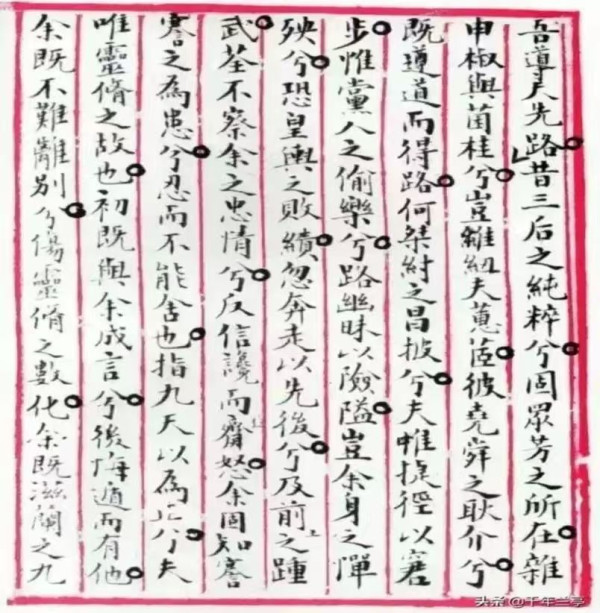 吾導夫先路昔三后之純粹兮固眾芳之所在雜
申椒與菌桂兮豈維紐夫蕙茝彼堯舜之耿介兮
既遵道而得路何桀紂之昌披兮夫惟捷徑以窘
步惟黨人之偷樂兮路幽昧以險隘豈余身之憚
殃兮恐皇輿之敗績忽奔走以先後兮及前之踵
武荃不察余之忠情兮反信讒而齌怒余固知謇
謇之為患兮忍而不能舍也指九天以為正兮夫
唯靈脩之故也初既與余成言兮後悔遁而有他
余既不難離別兮傷靈脩之數化余既滋蘭之九
头条 @千年兰亭